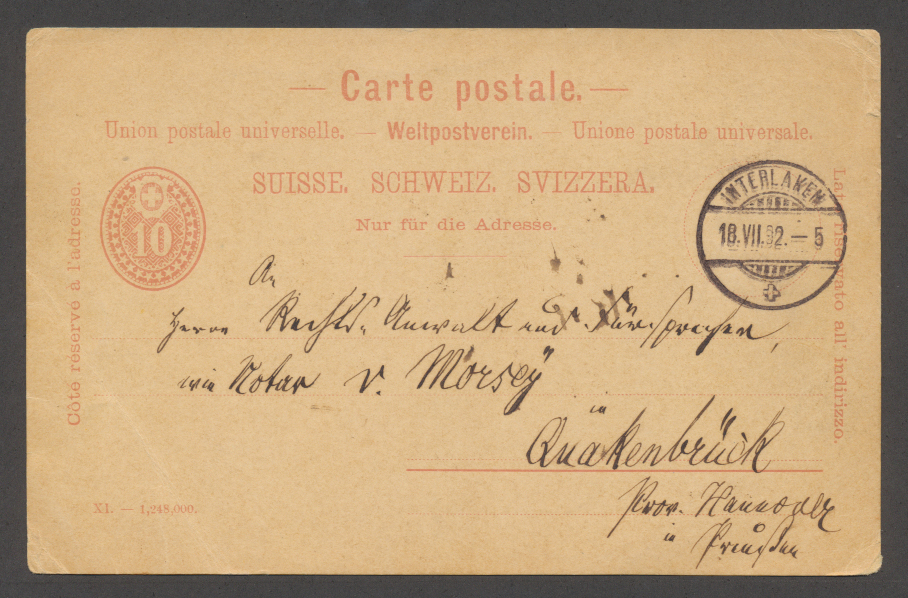 — Carte postale. —
Union postale universelle. — Weltpostverein. — Unione postale universale.
SUISSE. SCHWEIZ. SVIZZERA.
Nur für die Adresse.
Côté réservé à l'adresse.
10
INTERLAKEN
18.VII.92.— 5
Lato riservato all' indirizzo.
An
Herrn Rechts-Anwalt und Fürsprecher,
wie Notar v. Morsey
in
Quakenbrück
Prov. Hannover
in Preußen
XI. — 1,248,000.